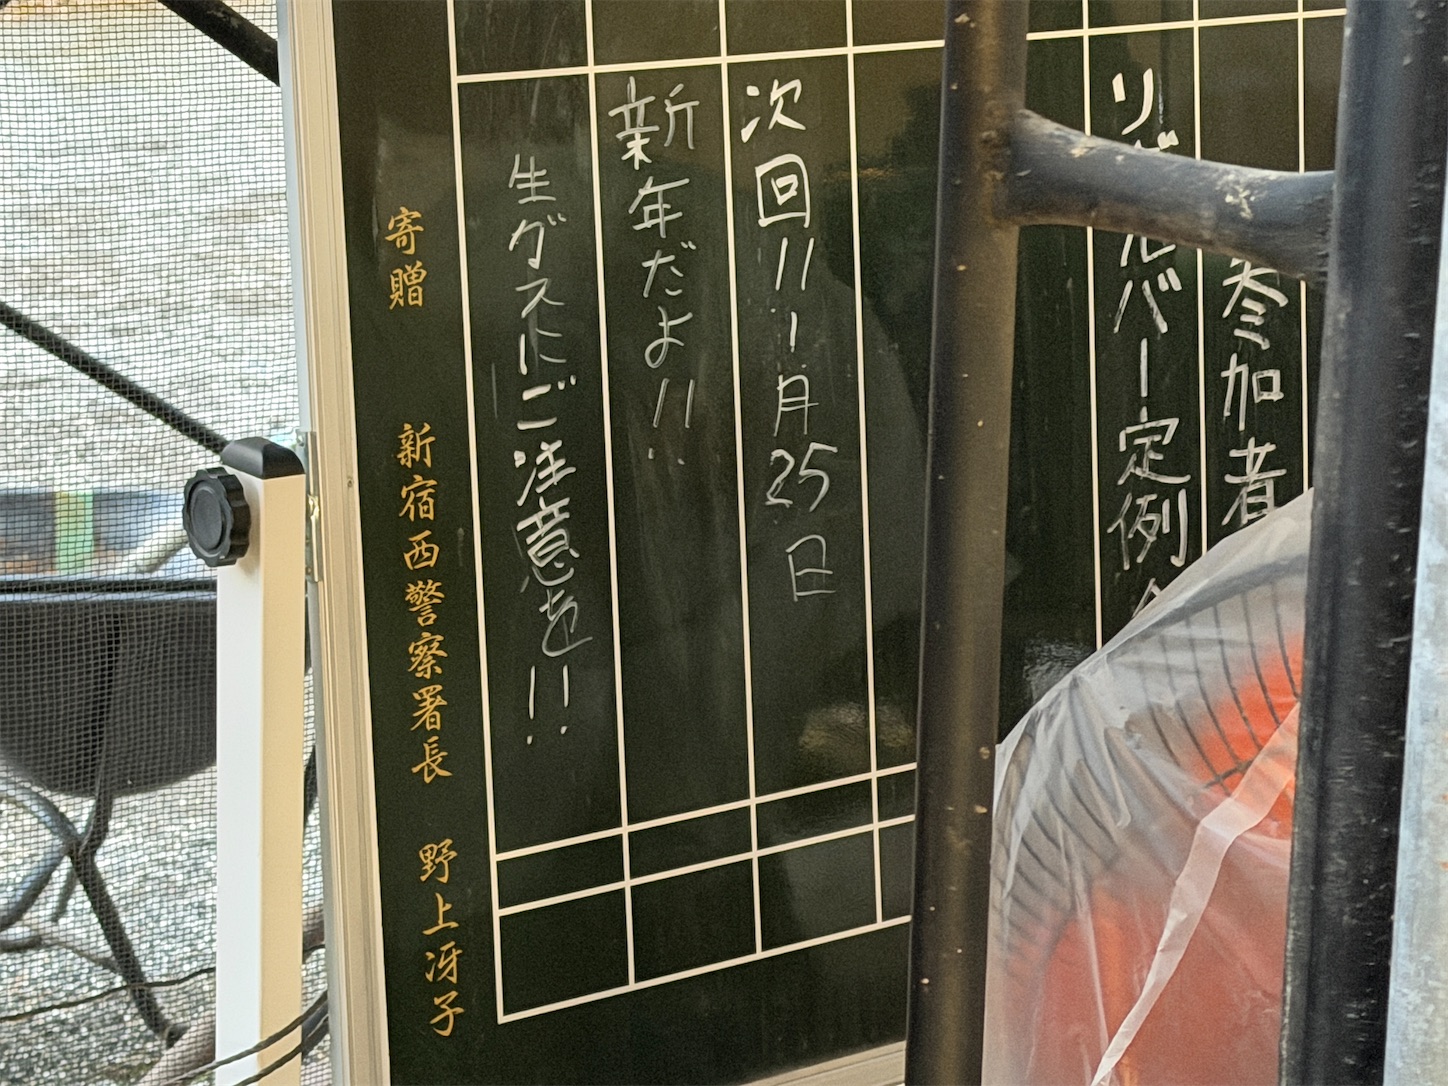 参加者
リボルバー定例
次回!!1月25日
新年だよ!!
生ガスにご注意を!!
寄贈 新宿西警察署長 野上冴子